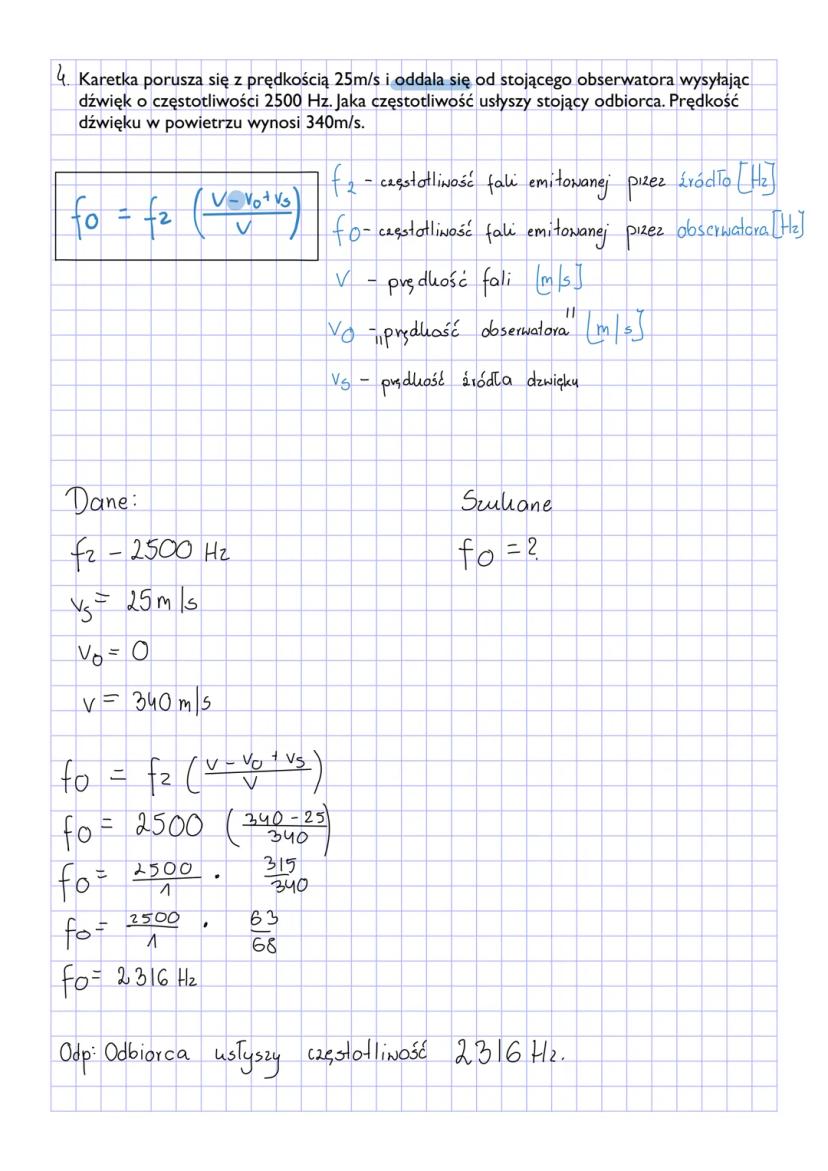 4. Karetka porusza się z prędkością 25m/s i oddala się od stojącego obserwatora wysyłając
dźwięk o częstotliwości 2500 Hz. Jaka częstotliwość usłyszy stojący odbiorca. Prędkość
dźwięku w powietrzu wynosi 340m/s.
fo = fz (V - Vo + Vs / V)
fz - częstotliwość fali emitowanej przez źródło [Hz]
fo - częstotliwość fali emitowanej przez obserwatora [Hz]
V - prędkość fali [m/s]
Vo - "prędkość obserwatora" [m/s]
Vs - prędkość źródła dźwięku
Dane:
fz - 2500 Hz
Vs = 25 m/s
Vo = 0
V = 340 m/s
Szukane
fo = ?
fo = fz (V - Vo + Vs / V)
fo = 2500 (340 - 25 / 340)
fo = 2500/1 · 315/340
fo = 2500/1 · 63/68
fo = 2316 Hz
Odp: Odbiorca usłyszy częstotliwość 2316 Hz.